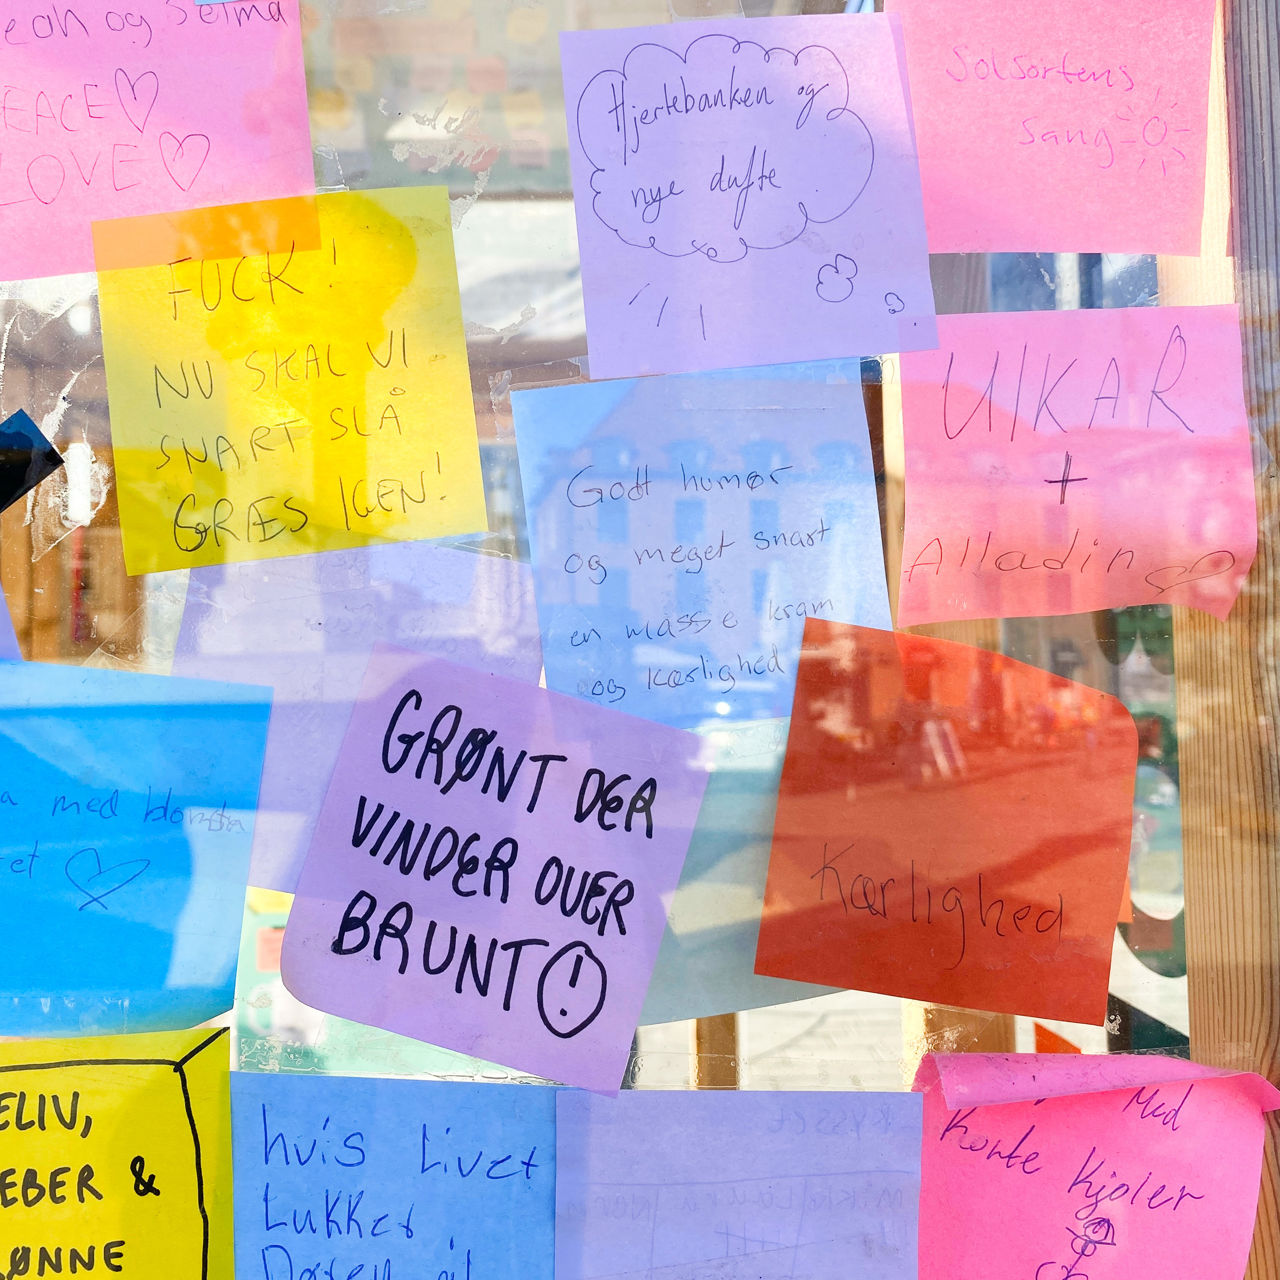 og Selma
LOVE
Hjertebanken og
nye dufte
Solsortens
sang
FUCK!
NU SKAL VI
SNART SLÅ
GRÆS IGEN!
Godt humør
og meget snart
en masse kram
og kærlighed
+
Alladin
med
GRØNT DER
VINDER OVER
BRUNT!
Kærlighed
&
hvis Livet
Lukker
Døren
KYSSET
Med
Korte Kjoler